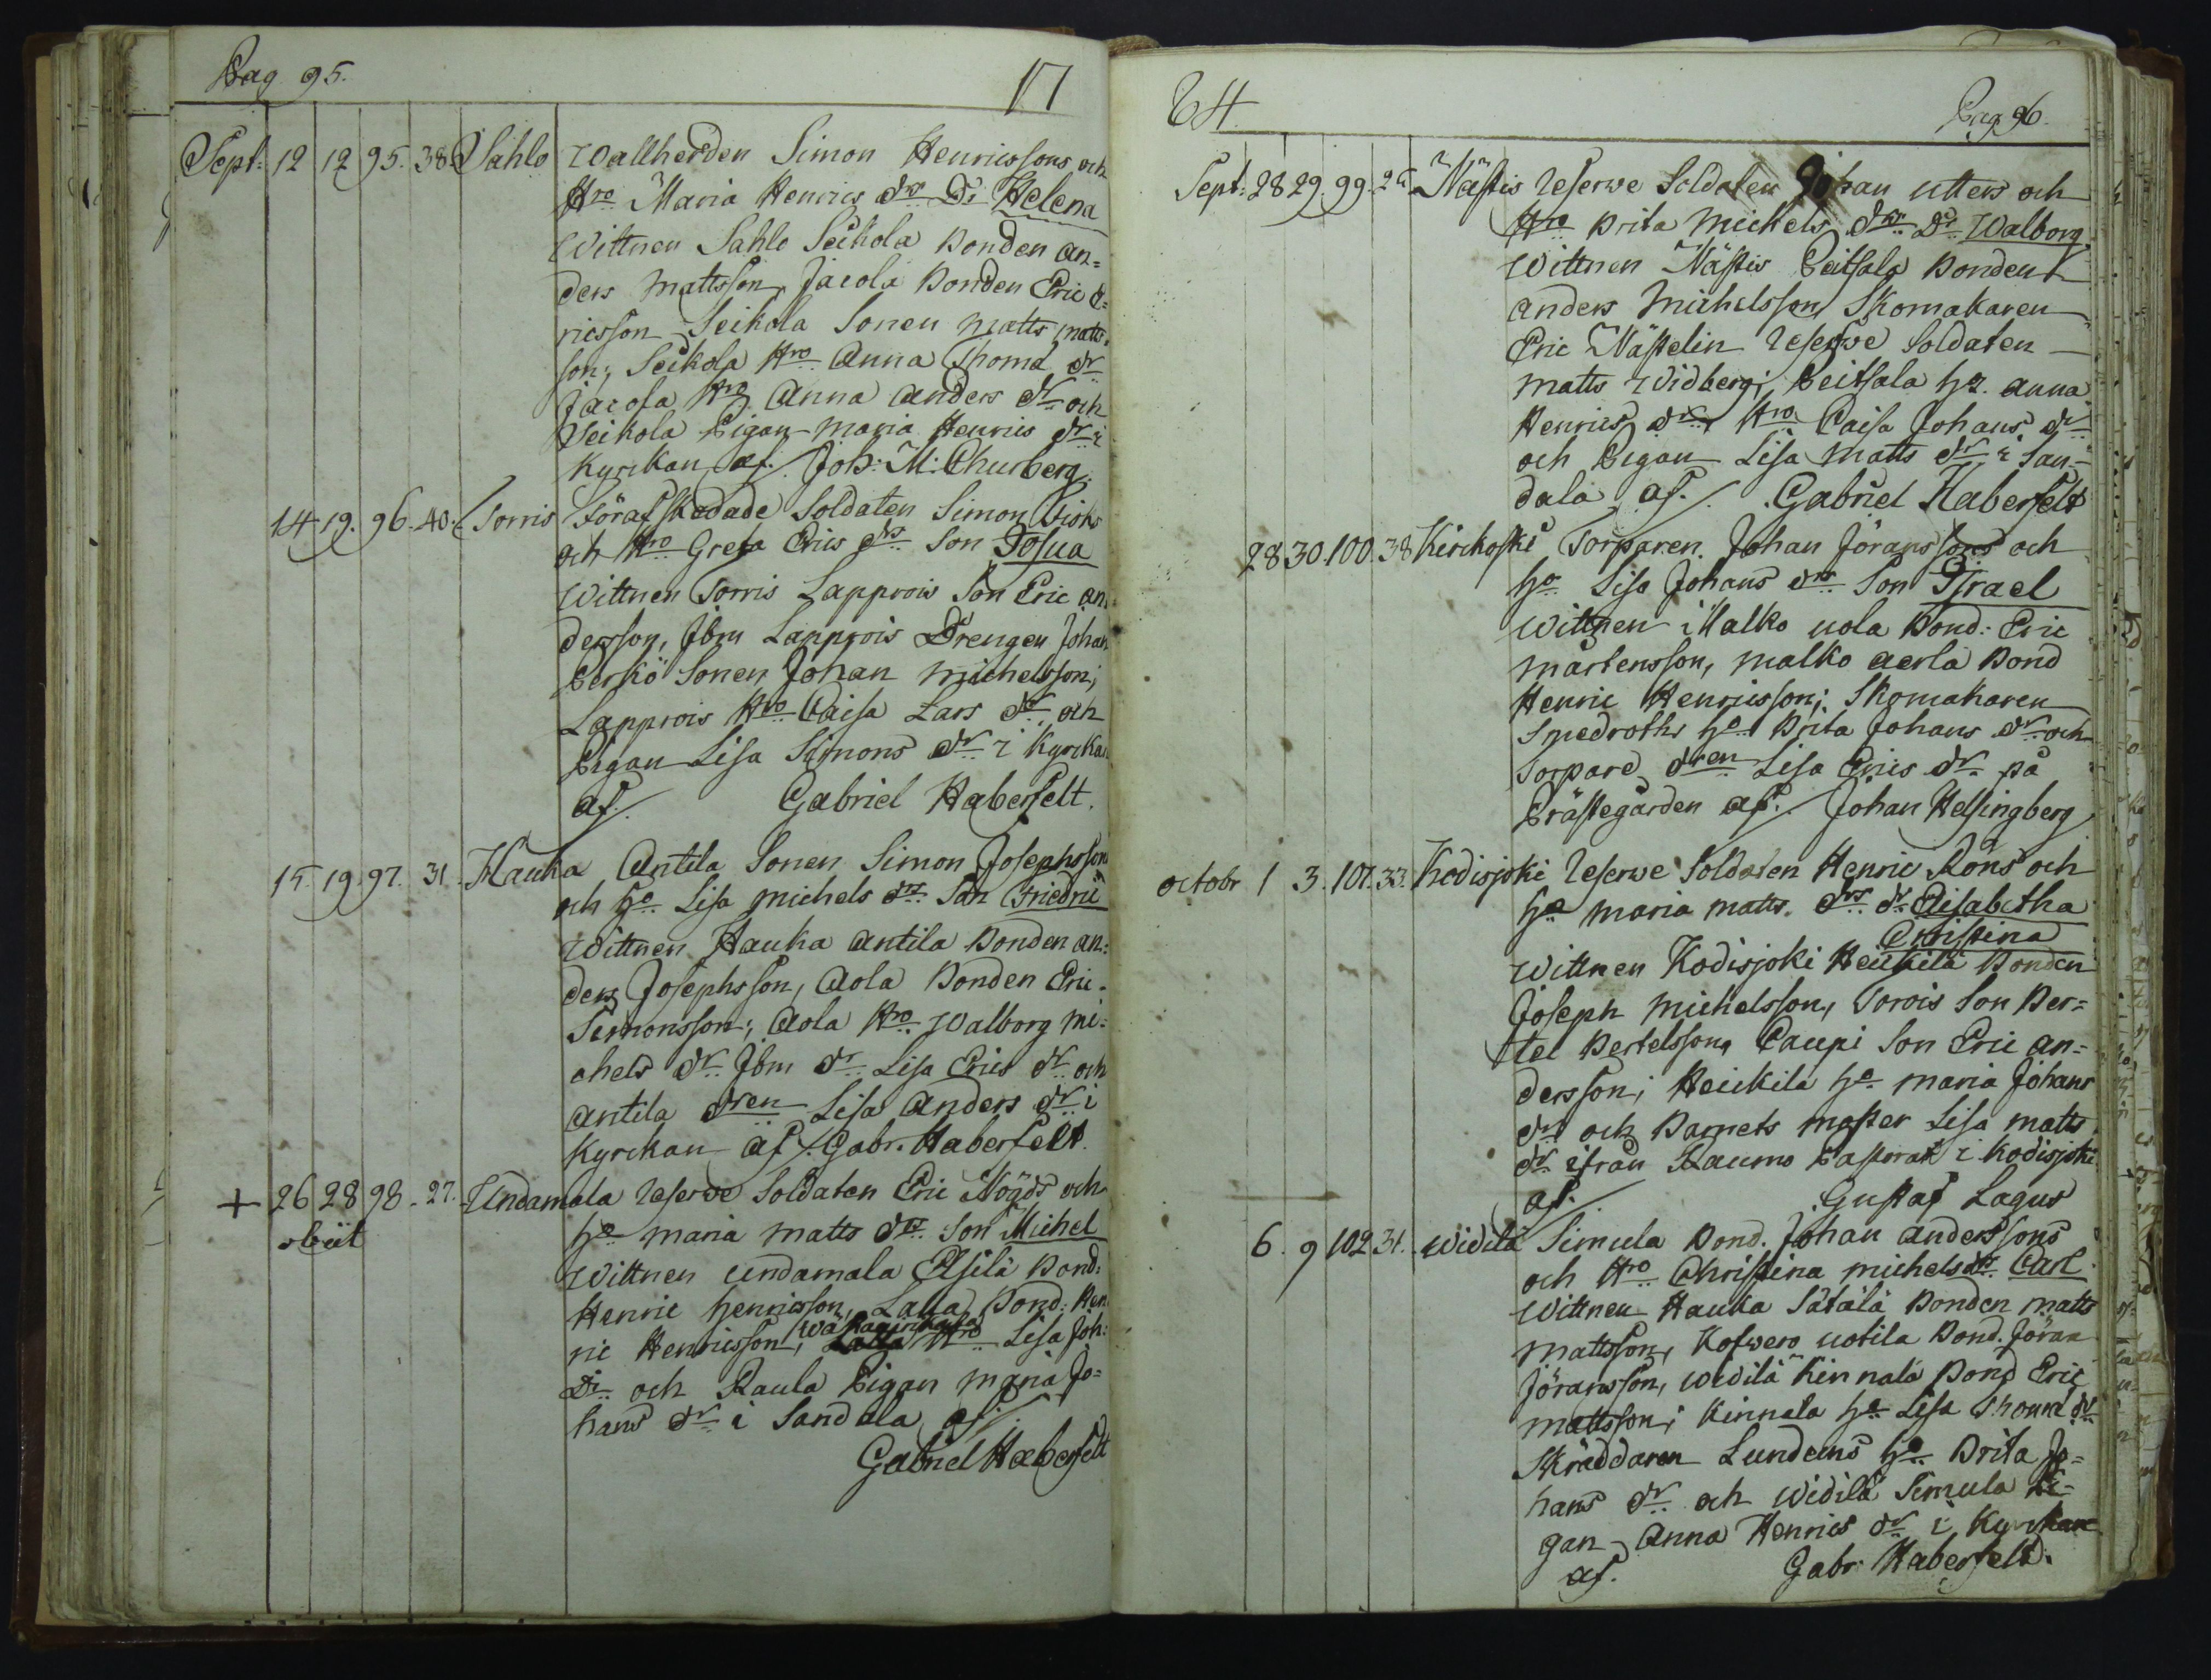 Pag 95.
17
Sept: 12 12 95. 38. Sahlo Wallherden Simon Henricssons och
Hro Maria Henrics drs Dr Helena
Wittnen Sahlo Seikola Bonden An=
ders Mattsson, Jacola Bonden Eric E=
ricsson Seikola Sonen Matts Matts=
son; Seikola Hro Anna Thomæ dr
Jacola Hro Anna Anders dr och
Seikola Pigan Maria Henrics dr i
Kyrckan af. Joh: M: Churberg.
14 19. 96. 40. Torris Förafskedade Soldaten Simon Fisks
och Hro Greta Erics drs Son Josua
Wittnen Torris Lapprois Son Eric An=
dersson, Ibm Lapprois Drengen Johan
Perkiö Sonen Johan Michelsson;
Lapprois Hro Caisa Lars dr och
Pigan Lisa Simons dr i Kyrckan
af. Gabriel Haberfelt.
15. 19 97. 31. Hauka Antila Sonen Simon Josephsson
och He Lisa Michels drs Son Friedric
Wittnen Hauka Antila Bonden An=
ders Josephsson, Aola Bonden Eric
Simonsson; Aola Hro Walborg Mi=
chels dr Ibm dr Lisa Erics dr och
Antila dren Lisa Anders dr i
Kyrckan af. Gabr. Haberfelt.
+ 26 28 98. 27. Undamala Reserve Soldaten Eric Nögds och
öbiit
He Maria Matts drs Son Michel
Wittnen Undamala Eskilä Bond:
Henric Henricsson, Lalla Bond: Hen
ric Henricsson, Hro Lisa Joh:
Dr och Raula Pigan Maria Jo=
hans dr i Sandala af.
Gabriel Haberfelt
64.
Pag 96.
Sept: 28 29. 99. 24 Nästis Reserve Soldaten Johan Utters och
Hro Brita Michels drs Dr Walborg
Wittnen Nästis Peitsala Bonden
Anders Michelsson Skomakaren
Eric Nästelin Reserve Soldaten
Matts Widberg; Peitsala He. Anna
Henrics dr Hro Caisa Johans dr
och Pigan Lisa Matts dr i San=
dala af. Gabriel Haberfelt
28 30. 100. 38 Kirckoski Torparen Johan Jöranssons och
He Lisa Johans drs Son Israel
Wittnen Malko Uola Bond: Eric
Mårtensson, Malko Aerla Bond
Henric Henricsson; Skomakaren
Smedroths He Brita Johans dr och
Torpare dren Lisa Erics dr på
Prästegården af. Johan Helsingberg
Octobr 1 3. 101. 33. Kodisjoki Reserve Soldaten Henric Röns och
He Maria Matts drs dr Elisabetha
Christina
Wittnen Kodisjoki Heickilä Bonden
Joseph Michelsson, Torois Son Ber=
tel Bertelsson, Caupi Son Eric An=
dersson; Heickilä He Maria Johans
dr och Barnets moster Lisa Matts
dr ifrån Raumo Pastorat i Kodisjoki
af. Gustaf Lagus
6. 9 102 31. Widilä Simula Bond. Johan Anderssons
och Hro Christina Michels drs Carl
Wittnen Hauka Sätälä Bonden Matts
Mattsson, Kofwero Uotila Bond. Jöran
Jöransson, Widilä Kinnala Bond Eric
Mattsson; Kinnala He Lisa Thomæ dr
Skräddaren Lundens He Brita Jo=
hans dr och Widilä Simula Pi=
gan Anna Henrics dr i Kyrckan
af. Gabr. Haberfelt.